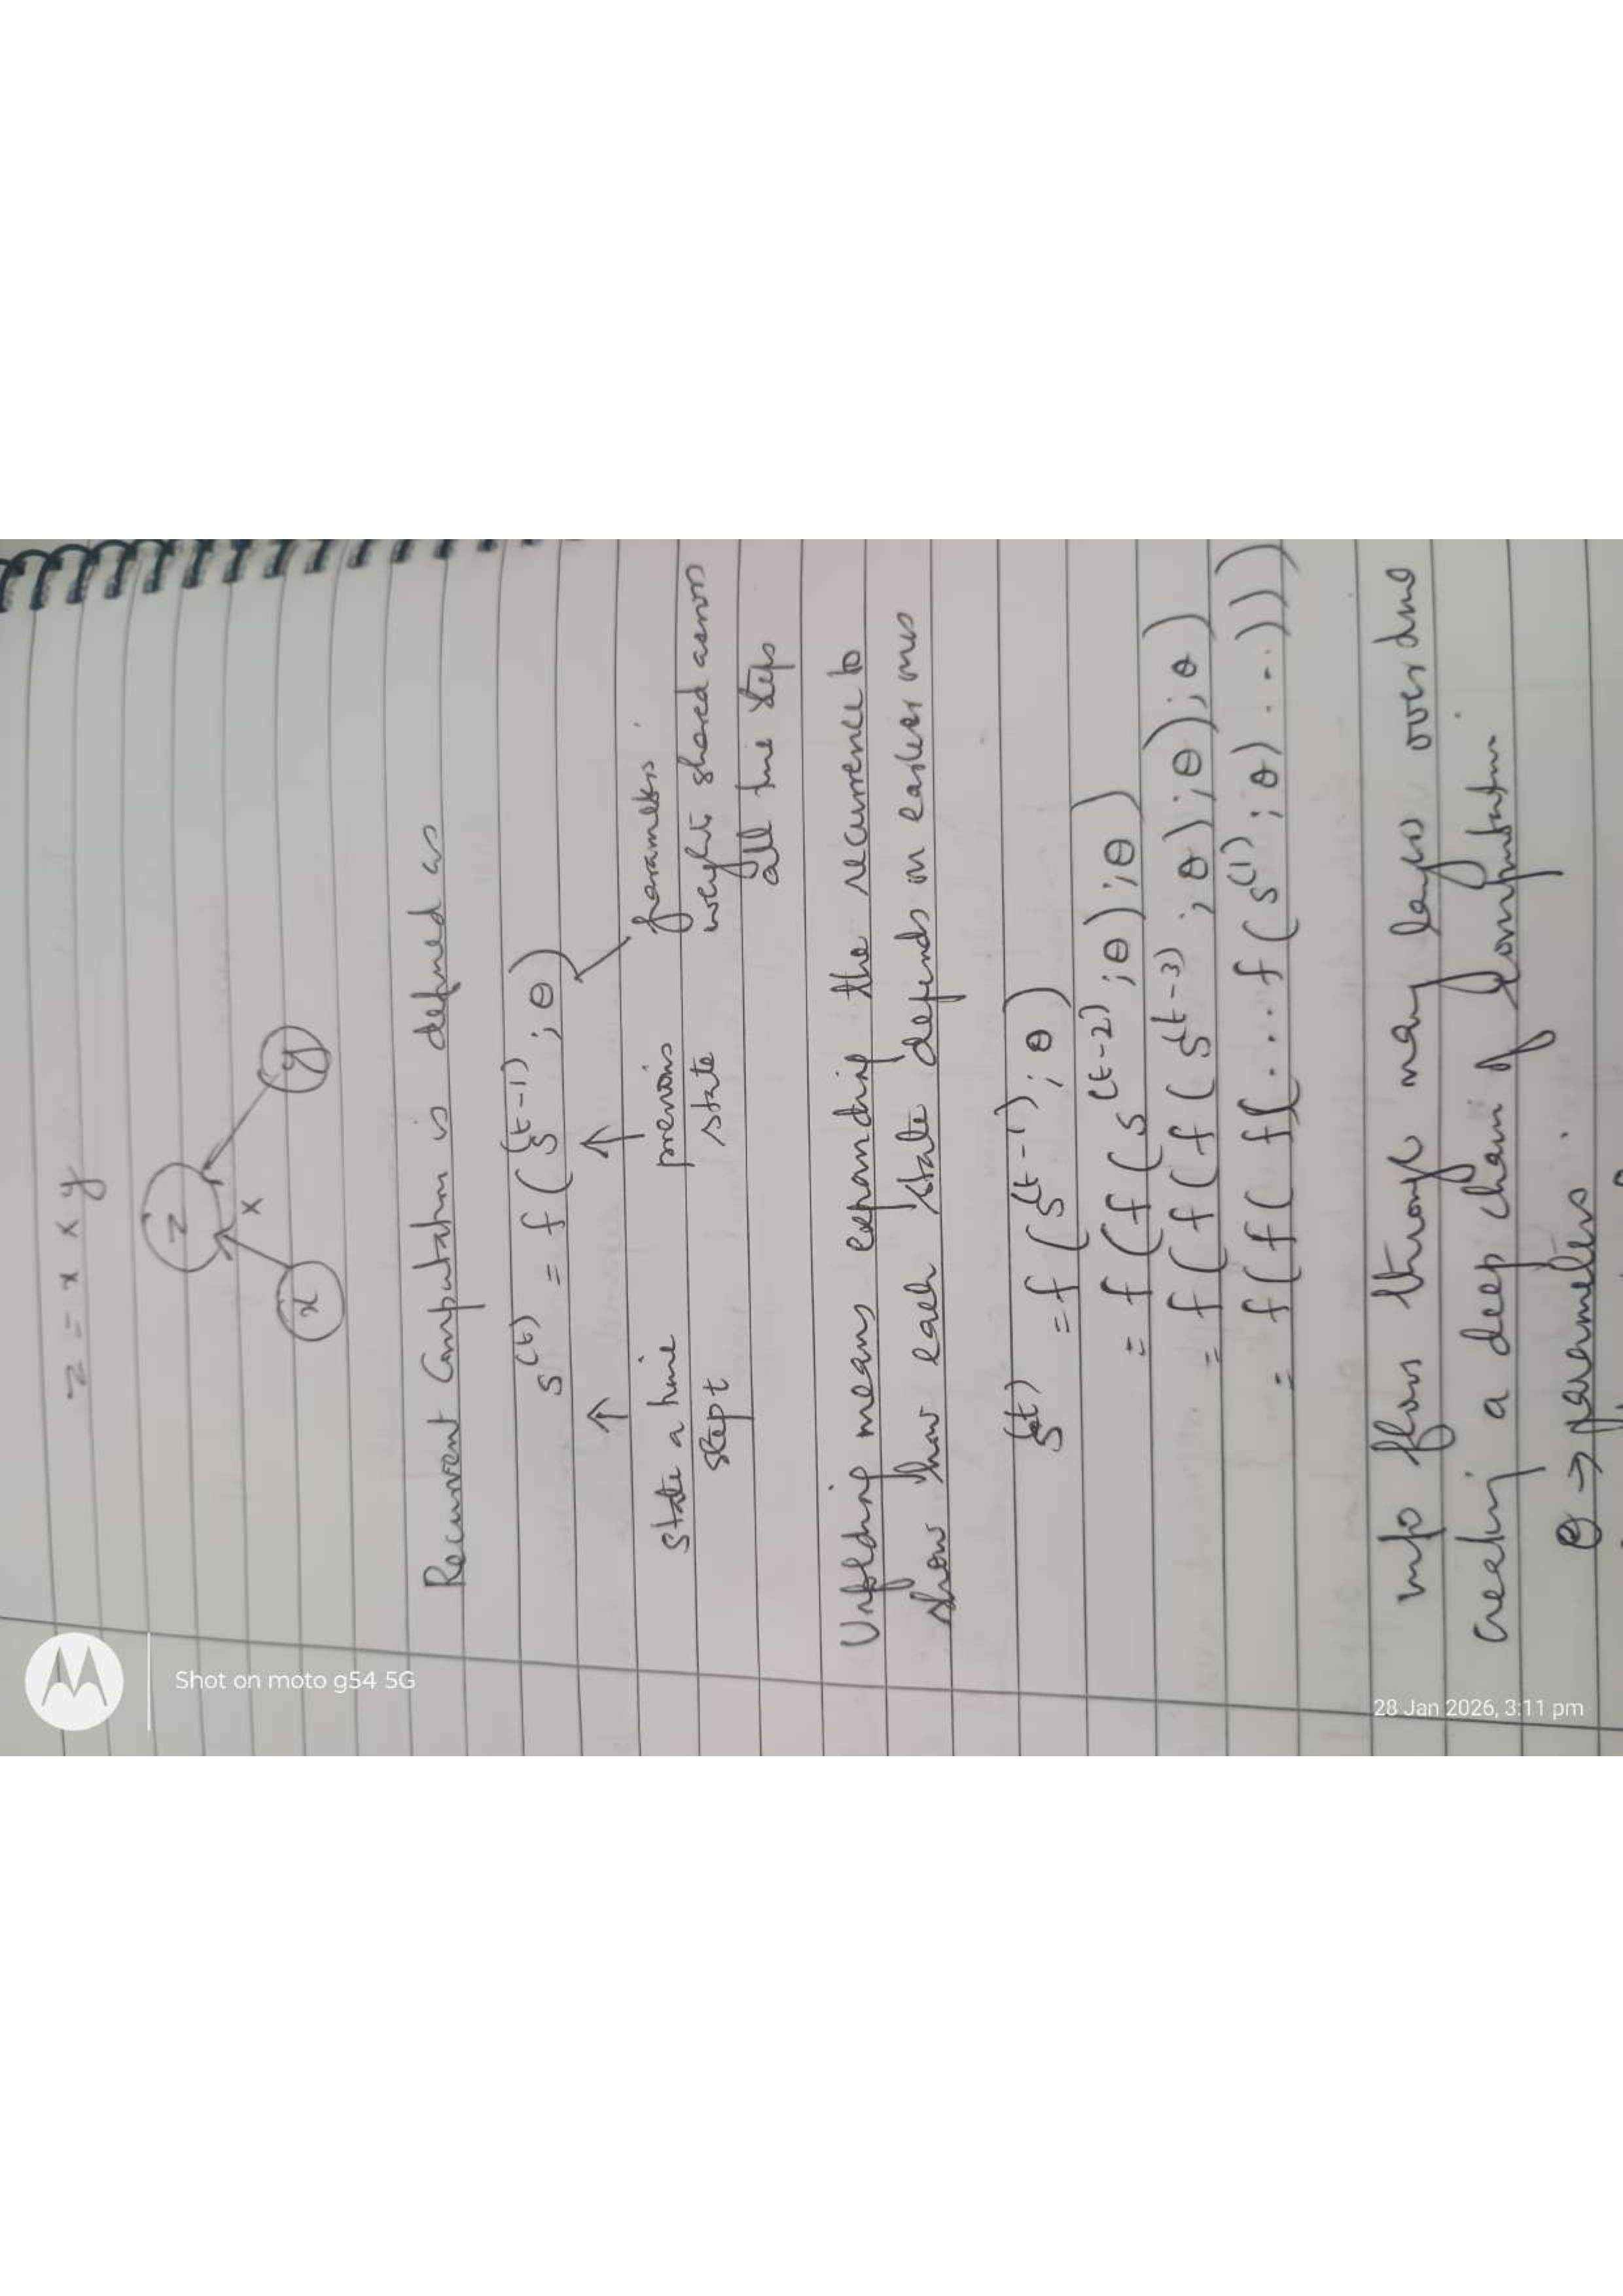 z = x × y
z
x
×
y
Recurrent Computation is defined as
s^(t) = f ( s^(t-1) ; θ )
↑ ↑
state a time previous parameters
step t state weights shared across
all time steps
Unfolding means expanding the recurrence to
show how each state depends on earlier ones
s^(t) = f ( s^(t-1) ; θ )
= f ( f ( s^(t-2) ; θ ) ; θ )
= f ( f ( f ( s^(t-3) ; θ ) ; θ ) ; θ )
= f ( f ( f ( .... f ( s^(1) ; θ ) ... ) ) )
info flows through many layers over time
creating a deep chain of computation.
θ → parameters.
Shot on moto g54 5G
28 Jan 2026, 3:11 pm